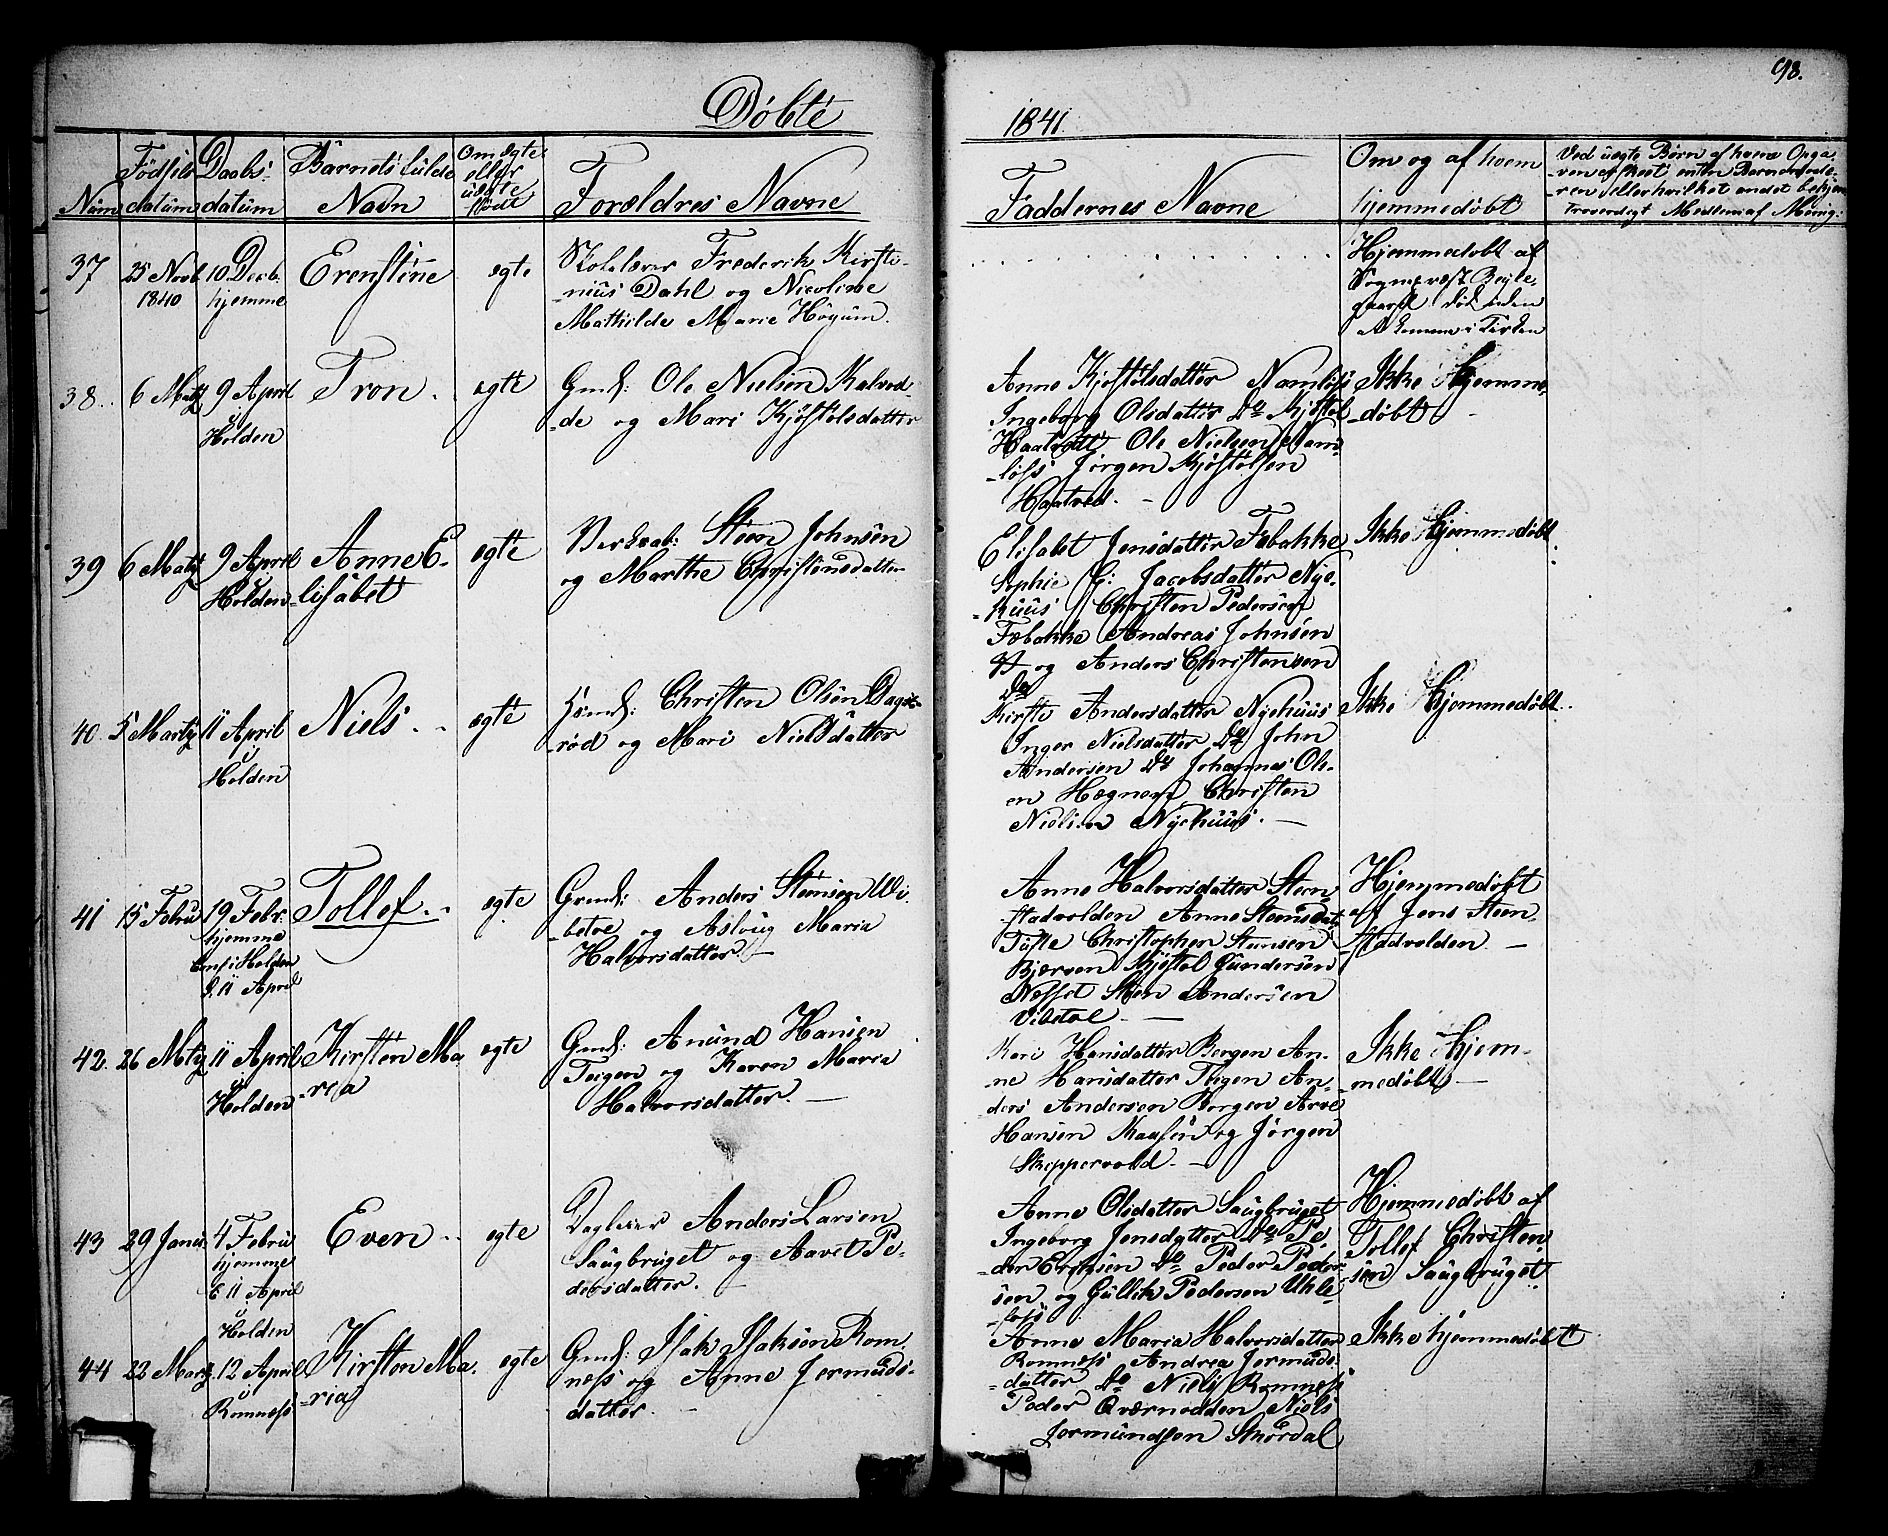 98.
Døbte
1841.
Num
Födsels datum
Daabs datum
Barnets fulde Navn
Om ægte eller uægte født
Forældres Navne
Faddernes Navne
Om og af hvem hjemmedøbt
Ved uægte Børn af hvem
37
25 Novb 1840
10 Decb. hjemme
Erenstine
ægte
Skolelærer Frederik Kirsti-
-nius Dahl og Nicoline
Mathilde Marie Höyum.
Hjemmedøbt af
død uden
at komme i Kirken
38.
6 Martz
9 April
i Holden
Tron.
ægte
Gmd: Ole Nielsen Kalved-
-de og Mari Kjöstolsdatter
Anne Kjöstolsdatter Namløs
Ingeborg Olsdatter Do Kjöstol
Haatvedt Ole Nielsen Nam-
-løs Jørgen Kjöstolsen
Haatved. -
Ikke Hjemme-
-døbt
39
6 Martz
9 April
i Holden
Anne E-
-lisabet
ægte
Steen Johnsen
og Marthe Christensdatter
Elisabet Jensdatter Fæbakke
Sophie G: Jacobsdatter Nye-
-huus Christen Pedersen
Fæbakke Andreas Johnsen
og Anders Christensen
Do
Ikke Hjemmedøbt
40.
5 Martz
11 April
i Holden
Niels.
ægte
Christen Olsen Dags-
-rød og Mari Nielsdatter
Kirste Andersdatter Nyehuus
Inger Nielsdatter Do John
Andersen Do Johannes Ols-
en Hægnen Christen
Nielsen Nyehuus. -
Ikke Hjemmedøbt
41
15 Febru
19 Febr.
hjemme
Conf i Holden
d. 11 April
Tollef.
ægte
Gmd: Anders Steensen Wi-
-betoe og Aslaug Maria
Halvorsdatter -
Anne Halvorsdatter Steen-
-stadvolden Anne Steensdat
Tufte Christopher Steensen
Bjærven Kjöstol Gundersen
Nesset Sten Andersen
Vibetoe. -
Hjemmedøbt
af Jens Steen-
stadvolden. -
42.
26 Mtz
11 April
i Holden
Kirsten Ma-
-ria
ægte
Gmd: Anund Hansen
Teigen og Karen Maria
Halvorsdatter. -
Kari Hansdatter Borgen An-
-ne Hansdatter Teigen An-
-ders Andersen Borgen Arve
Hansen Kaasen og Jørgen
Skeppervold. -
Ikke Hjem-
-medøbt -
43
29 Janu
4 Febru
hjemme
C 11 April
i Holden
Even
ægte
Dagleier Anders Larsen
Saugbruget og Aavet Pe-
-dersdatter.
Anne Olsdatter Saugbruget
Ingeborg Jensdatter Do Pe-
-der Erichsen Do Peder Peder-
sen og Gullik Pedersen Uhle-
-fos
Hjemmedøbt af
Tollef Christen-
sen Saugbruget
44
22 Martz
12 April
i Romnæs
Kirsten Ma-
-ria
ægte
Gmd: Isak Isaksen Rom-
næs og Anne Jermunds-
datter.
Anne Maria Halvorsdatter
Romnæs Andrea Jermunds-
datter Do Niels Romnæs
Peder Qværnodden Niels
Jermundsen Skardal
Ikke hjemmedøbt